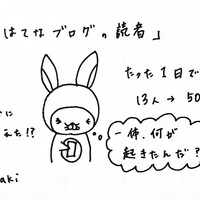 はてなブログの読者」
たった1日で
13人→50
に
た!?
一体、何が
起きたんだ?
aki